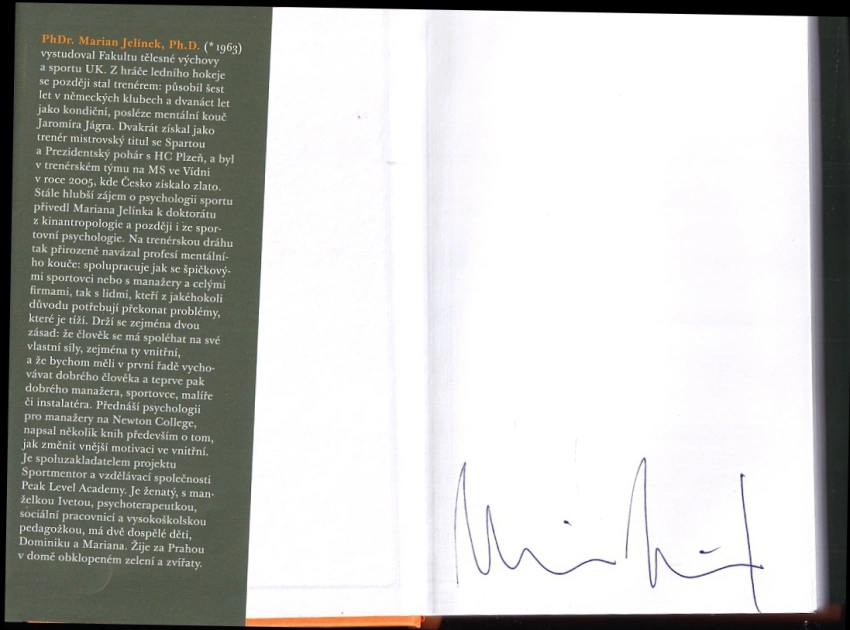 PhDr. Marian Jelínek, Ph.D. (*1963)
vystudoval Fakultu tělesné výchovy
a sportu UK. Z hráče ledního hokeje
se později stal trenérem: působil šest
let v německých klubech a dvanáct let
jako kondiční, posléze mentální kouč
Jaromíra Jágra. Dvakrát získal jako
trenér mistrovský titul se Spartou
a Prezidentský pohár s HC Plzeň, a byl
v trenérském týmu na MS ve Vídni
v roce 2005, kde Česko získalo zlato.
Stále hlubší zájem o psychologii sportu
přivedl Mariana Jelínka k doktorátu
z kinantropologie a později i ze spor-
tovní psychologie. Na trenérskou dráhu
tak přirozeně navázal profesí mentální-
ho kouče: spolupracuje jak se špičkový-
mi sportovci nebo s manažery a celými
firmami, tak s lidmi, kteří z jakéhokoli
důvodu potřebují překonat problémy,
které je tíží. Drží se zejména dvou
zásad: že člověk se má spoléhat na své
vlastní síly, zejména ty vnitřní,
a že bychom měli v první řadě vycho-
vávat dobrého člověka a teprve pak
dobrého manažera, sportovce, malíře
či instalatéra. Přednáší psychologii
pro manažery na Newton College,
napsal několik knih především o tom,
jak změnit vnější motivaci ve vnitřní.
Je spoluzakladatelem projektu
Sportmentor a vzdělávací společnosti
Peak Level Academy. Je ženatý, s man-
želkou Ivetou, psychoterapeutkou,
sociální pracovnicí a vysokoškolskou
pedagožkou, má dvě dospělé děti,
Dominiku a Mariana. Žije za Prahou
v domě obklopeném zelení a zvířaty.